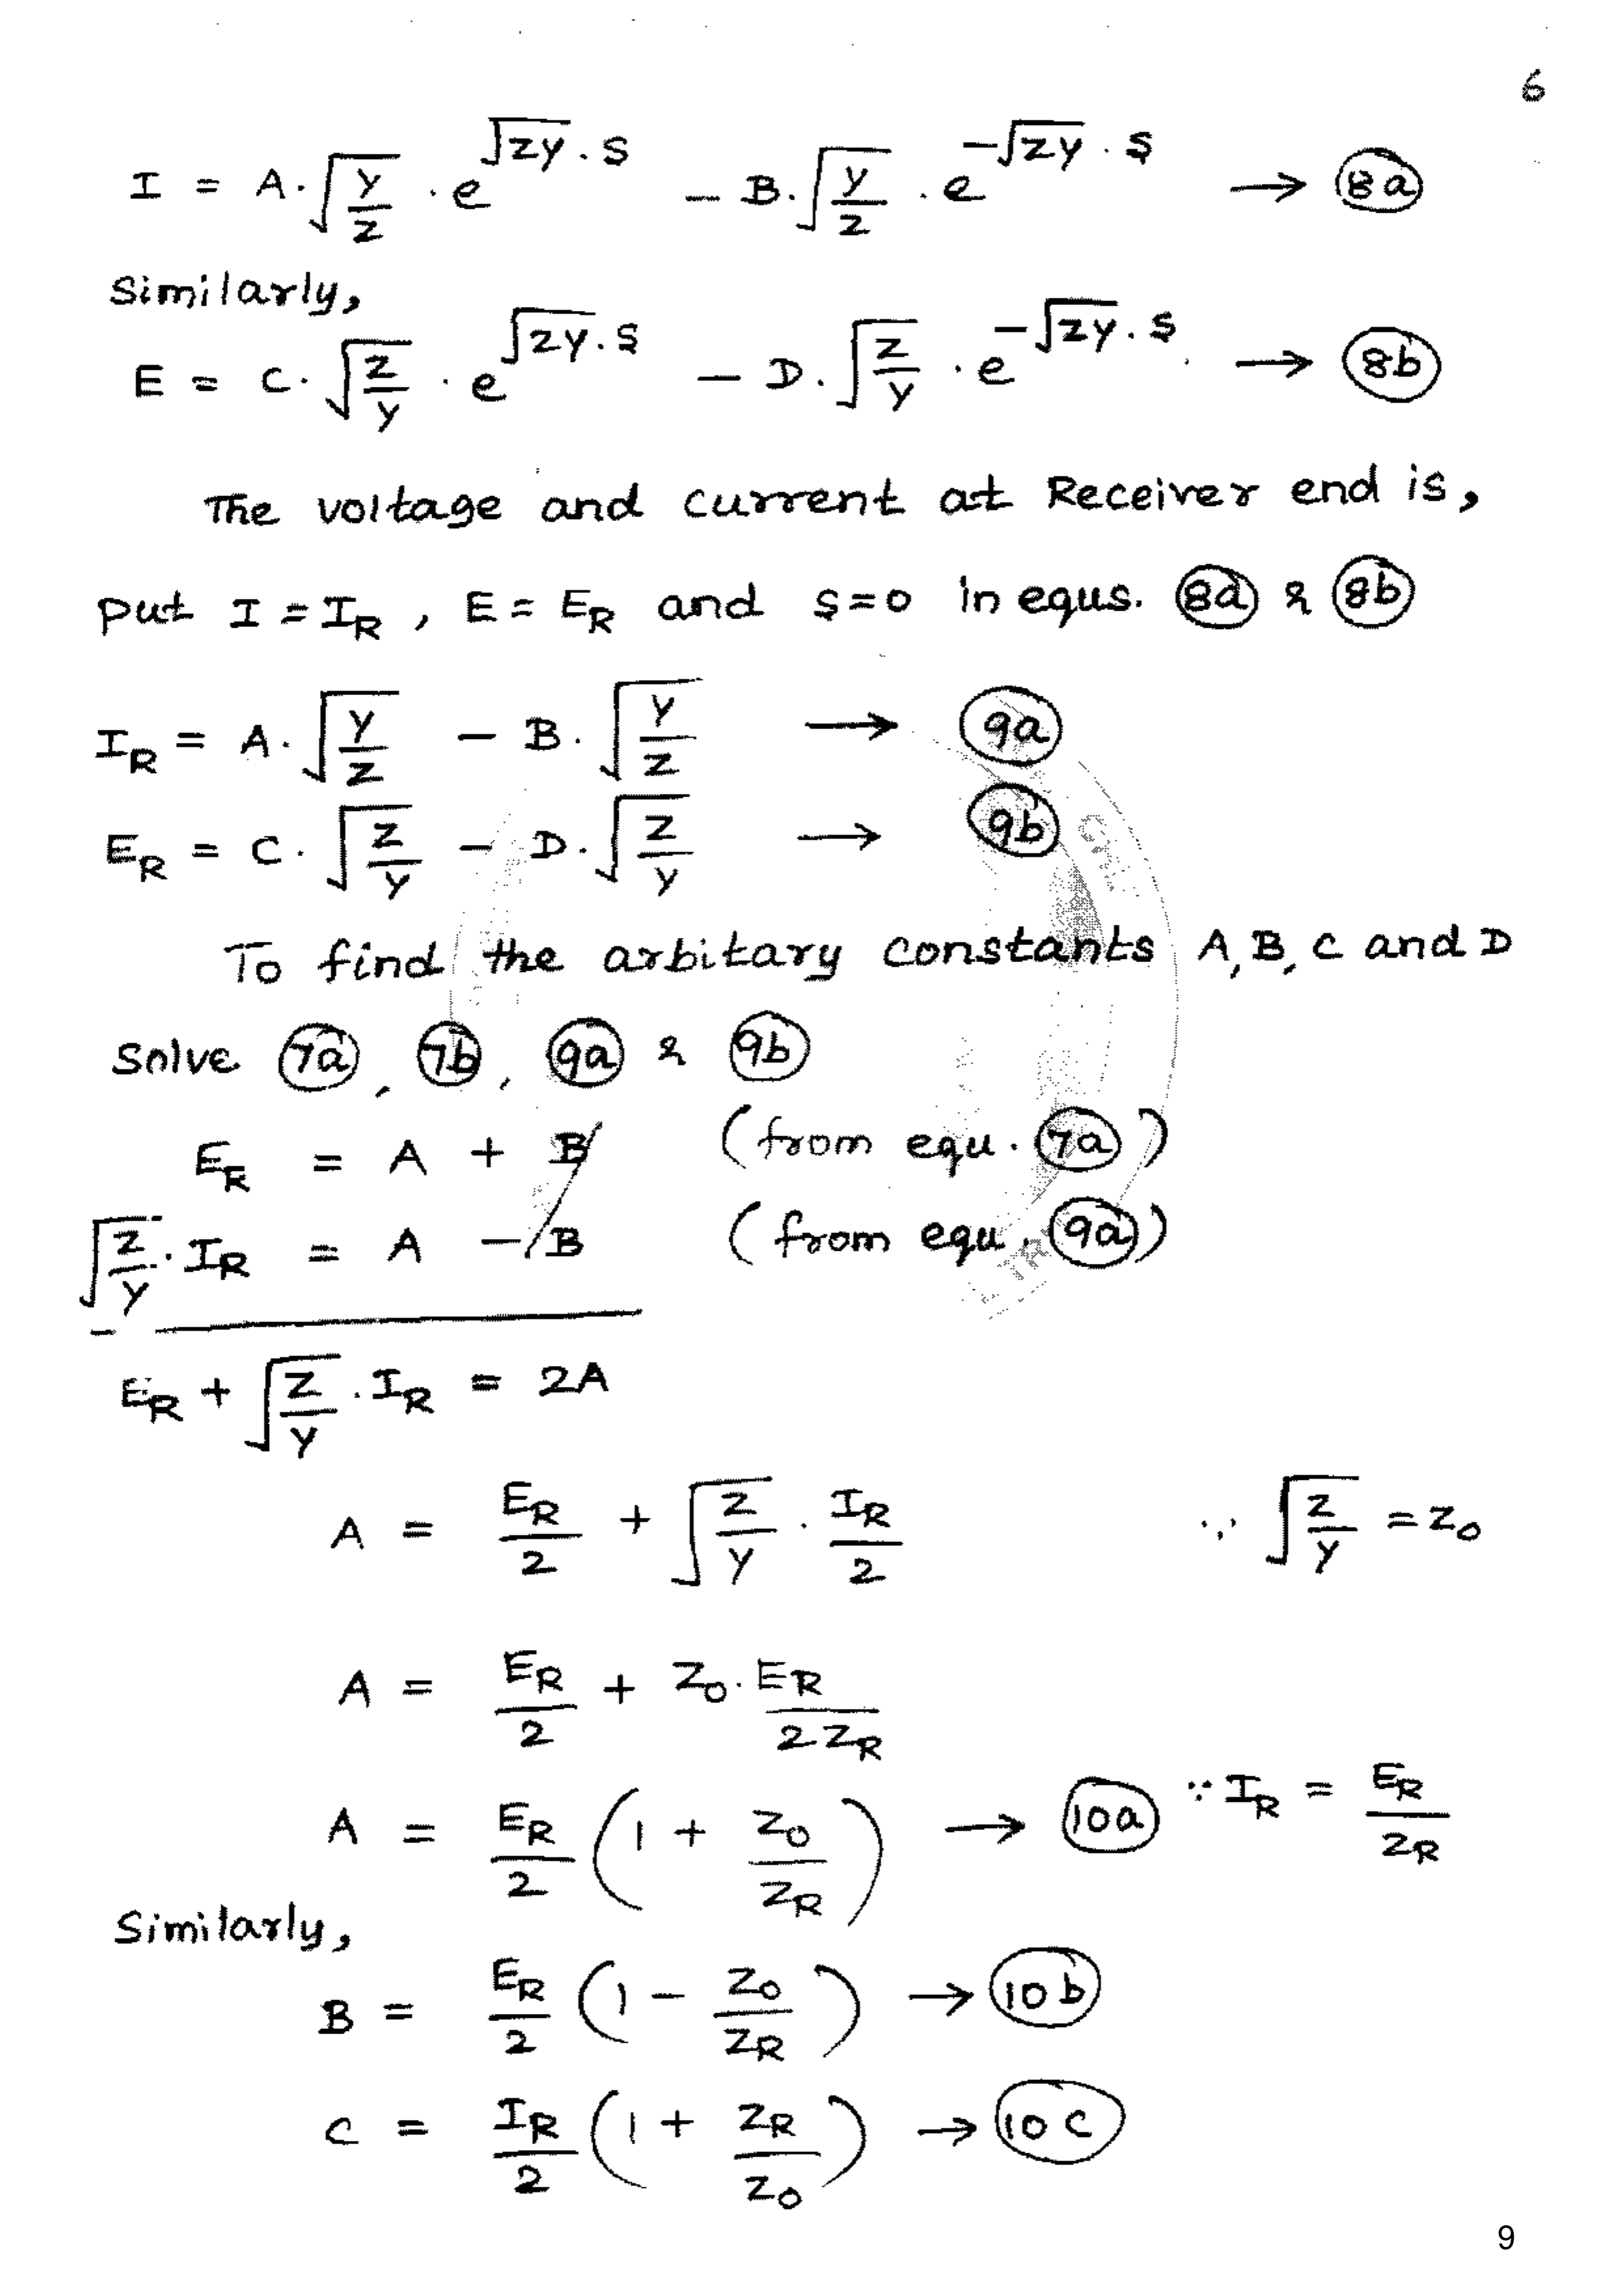 6
I = A·√(y/z) · e^(√zy · s) − B·√(y/z) · e^(−√zy · s) → (8a)
Similarly,
E = C·√(z/y) · e^(√zy · s) − D·√(z/y) · e^(−√zy · s) → (8b)
The voltage and current at Receiver end is,
put I = I_R , E = E_R and s=0 in equs. (8a) & (8b)
I_R = A·√(y/z) − B·√(y/z) → (9a)
E_R = C·√(z/y) − D·√(z/y) → (9b)
To find the arbitary constants A, B, C and D
Solve (7a), (7b), (9a) & (9b)
E_R = A + B (from equ. (7a))
√(z/y) · I_R = A − B (from equ. (9a))
E_R + √(z/y) · I_R = 2A
A = E_R/2 + √(z/y) · I_R/2 ∵ √(z/y) = z_0
A = E_R/2 + Z_0 · E_R/2Z_R
A = E_R/2 (1 + Z_0/Z_R) → (10a) ∵ I_R = E_R/Z_R
Similarly,
B = E_R/2 (1 − Z_0/Z_R) → (10b)
C = I_R/2 (1 + Z_R/Z_0) → (10c)
9